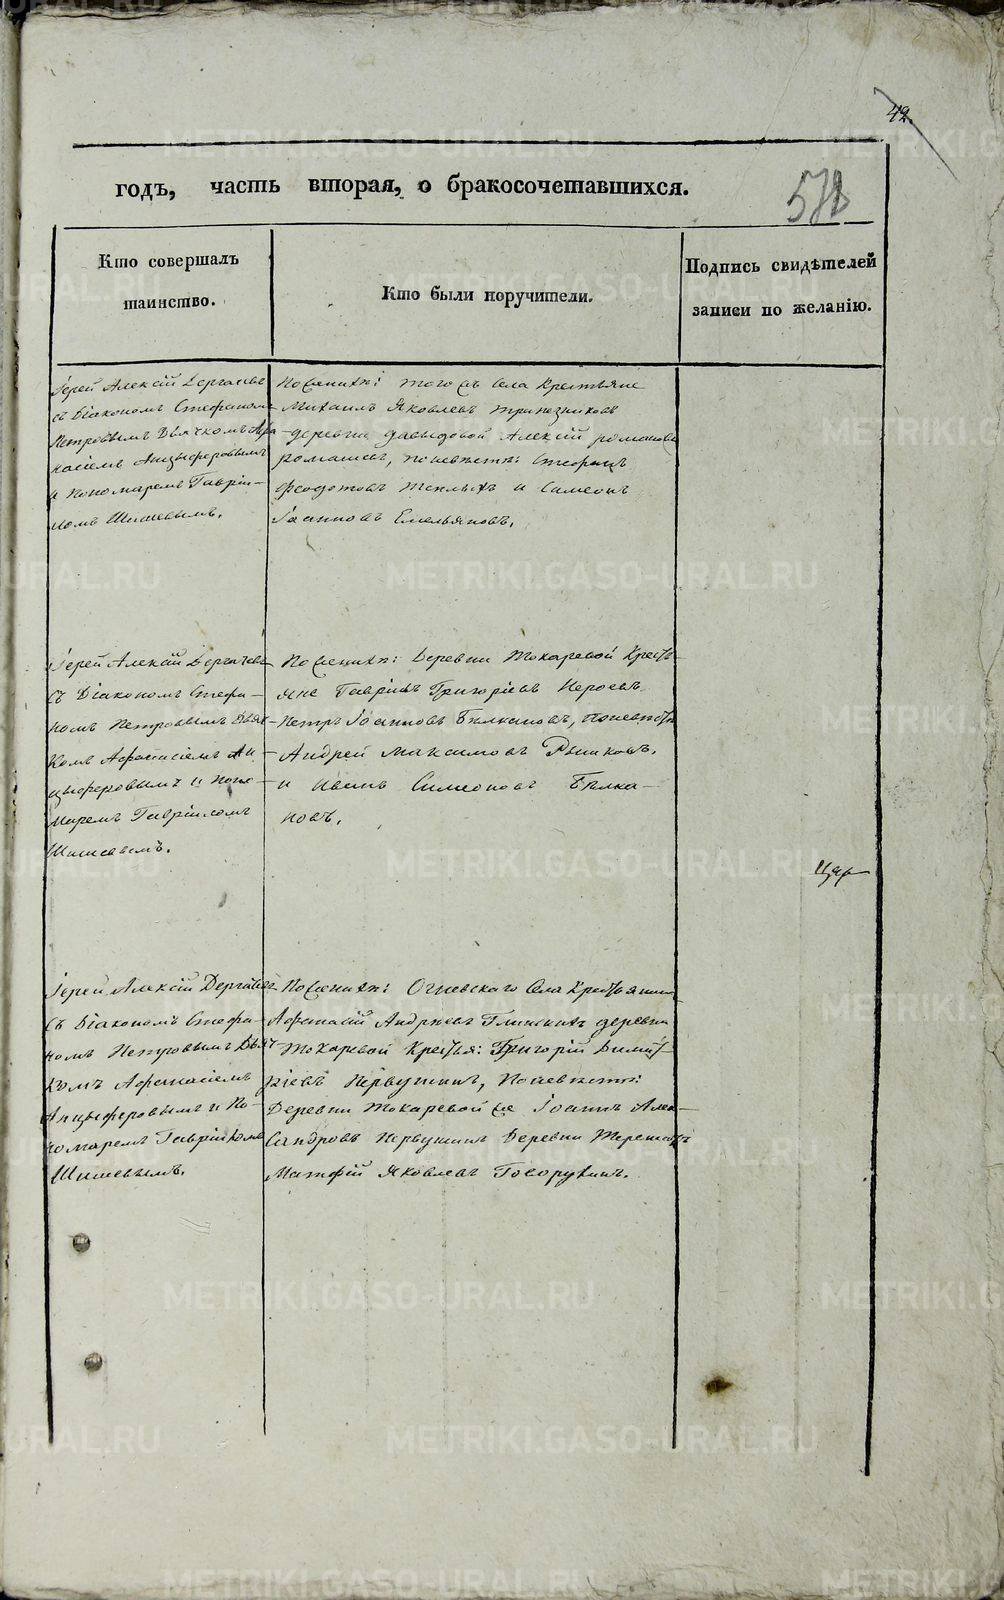 42.
годъ, часть вторая, о бракосочетавшихся.
Кто совершалъ
таинство.
Кто были поручители.
Подпись свидѣтелей
записи по желанію.
Іерей Алексій Дергачевъ
съ Діакономъ Стефаномъ
Петровымъ Дьячкомъ Афа
насіемъ Анцыферовымъ
и Пономаремъ Гавріи-
ломъ Шишевымъ.
По женихѣ: того съ села Крестьяне
Михаилъ Яковлевъ Трапезниковъ
деревни Давыдовой Алексій Романовъ
Ромашевъ, по невѣстѣ: Стефанъ
Федотовъ Теплыхъ и Симеонъ
Іоанновъ Емельяновъ.
Іерей Алексій Дергачевъ
Съ Діакономъ Стефа-
номъ Петровымъ Дьяч-
комъ Афанасіемъ Ан-
цыферовымъ и Поно-
маремъ Гавріиломъ
Шишевымъ.
По женихѣ: Деревни Токаревой Кресть-
яне Гавріилъ Григоріевъ
Петръ Іоанновъ Бѣлкановъ, по невѣстѣ
Андрей Максимовъ
и Иванъ Симеоновъ Бѣлка-
новъ.
Іерей Алексій Дергачевъ
Съ Діакономъ Стефа-
номъ Петровымъ Дьяч-
комъ Афанасіемъ
Анцыферовымъ и По-
номаремъ Гавріиломъ
Шишевымъ.
По женихѣ: Огневскаго Села Крестьянинъ
Афанасій Андреевъ Глинскихъ деревни
Токаревой Крестья: Григорій Димит-
ріевъ Первушинъ, По невѣстѣ:
Деревни Токаревой же Іоаннъ Алек-
сандровъ Первушинъ Деревни
Матфій Яковлевъ Говорухинъ.
METRIKI.GASO-URAL.RU